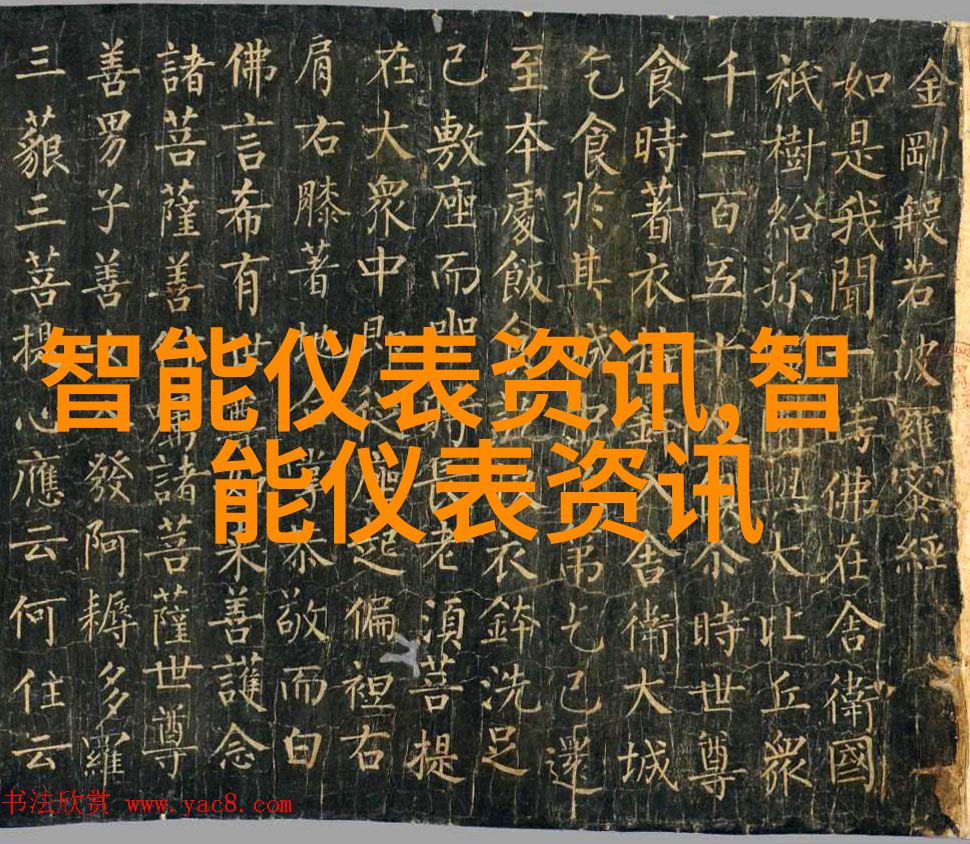 智能仪表资讯,智
能仪表资讯
金剛般若波羅蜜經
如是我聞一時佛在舍衛國
祇樹給孤園與大比丘眾
千二百五十尒時世尊
食時著衣持鉢入舍衛大城
乞食於其城弟乞已還
至本處飯食衣鉢洗足
已敷座而坐長老須菩提
在大眾中即從座起偏袒右
肩右膝著地掌恭敬而白
佛言希有世來善護念
諸菩薩善付囑諸菩薩世尊
善男子善人發阿耨多羅
三藐三菩提心應云何住云
书法欣赏 www.yac8.com